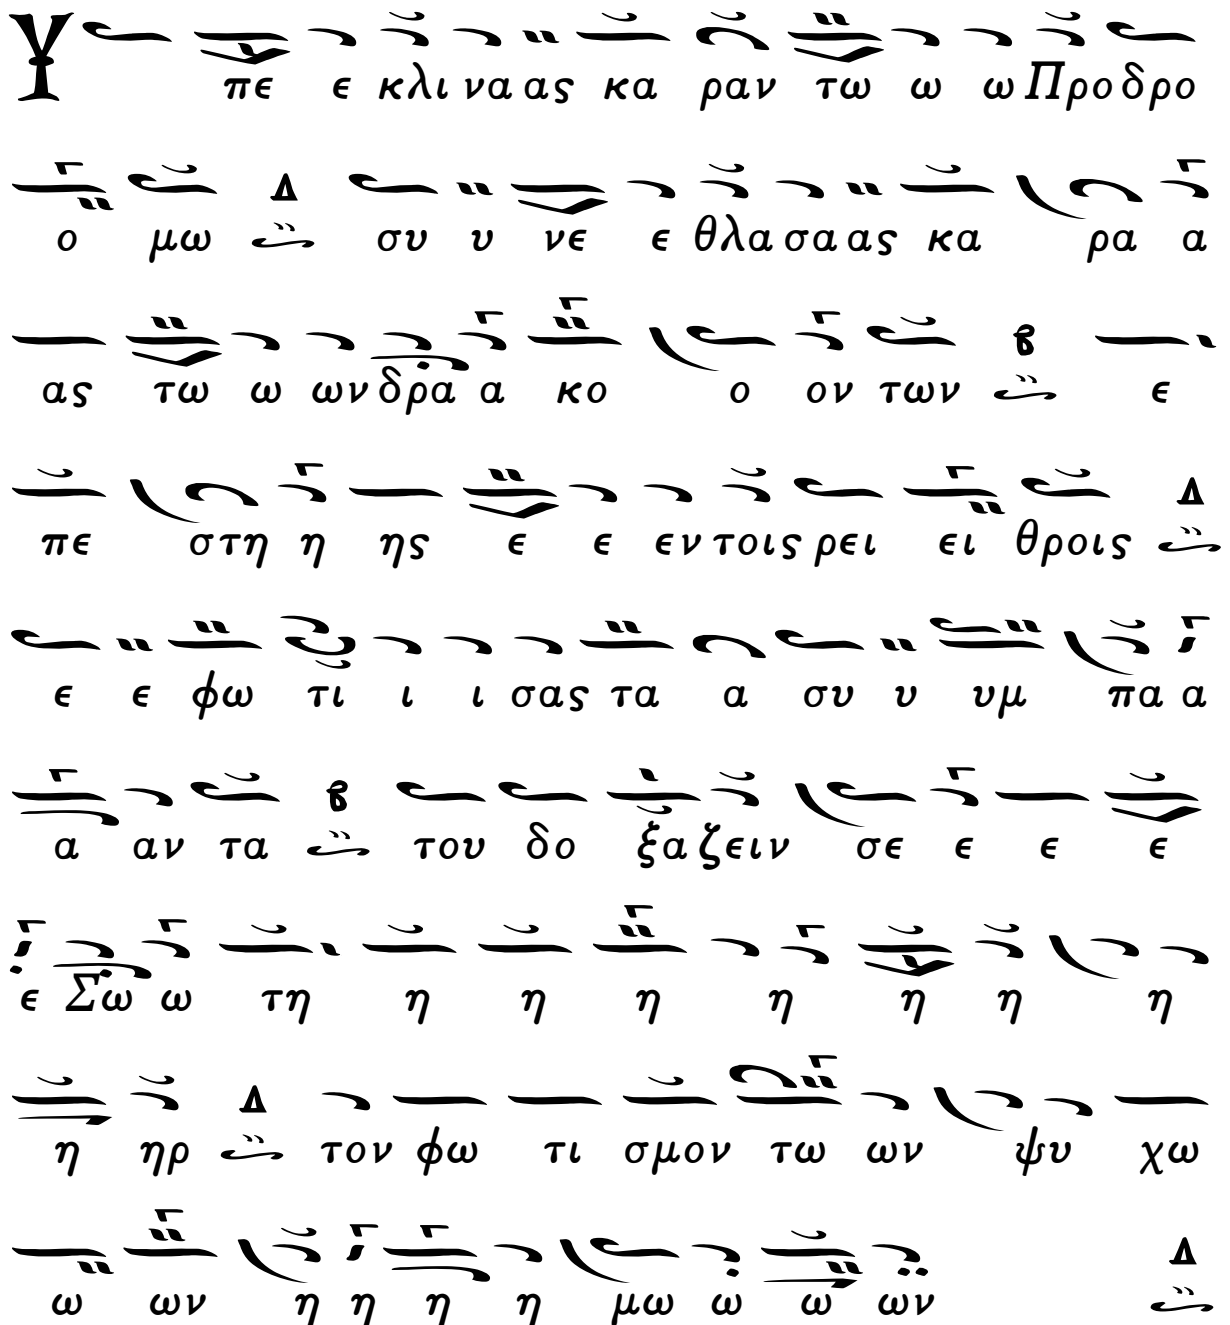 Υ πε ε κλι να ας κα ραν τω ω ω Προ δρο
ο μω συ υ νε ε θλα σα ας κα ρα α
ας τω ω ων δρα α κο ο ον των ε
πε στη η ης ε ε εν τοις ρει ει θροις
ε ε φω τι ι ι σας τα α συ υ υμ πα α
α αν τα του δο ξα ζειν σε ε ε ε
ε Σω ω τη η η η η η η η
η ηρ τον φω τι σμον τω ων ψυ χω
ω ων η η η η μω ω ω ων